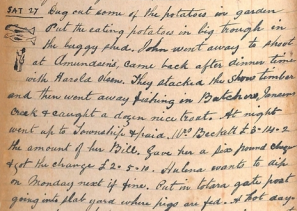 SAT 27 Dug out some of the potatoes in garden
Put the eating potatoes in big trough in
the buggy shed. John went away to shoot
at Amundsens, came back after dinner time
with Harold Olsen. They stacked the show timber
and then went away fishing in Butchers,
Creek & caught a dozen nice trout. At night
went up to Township & paid Mrs Beckett £3-14-2
the amount of her Bill. Gave her a six pound
& got the change £2-5-10. Hulena wants to dip
on Monday next if fine. Put in totara gate post
going into slab yard where pigs are fed. A hot day.